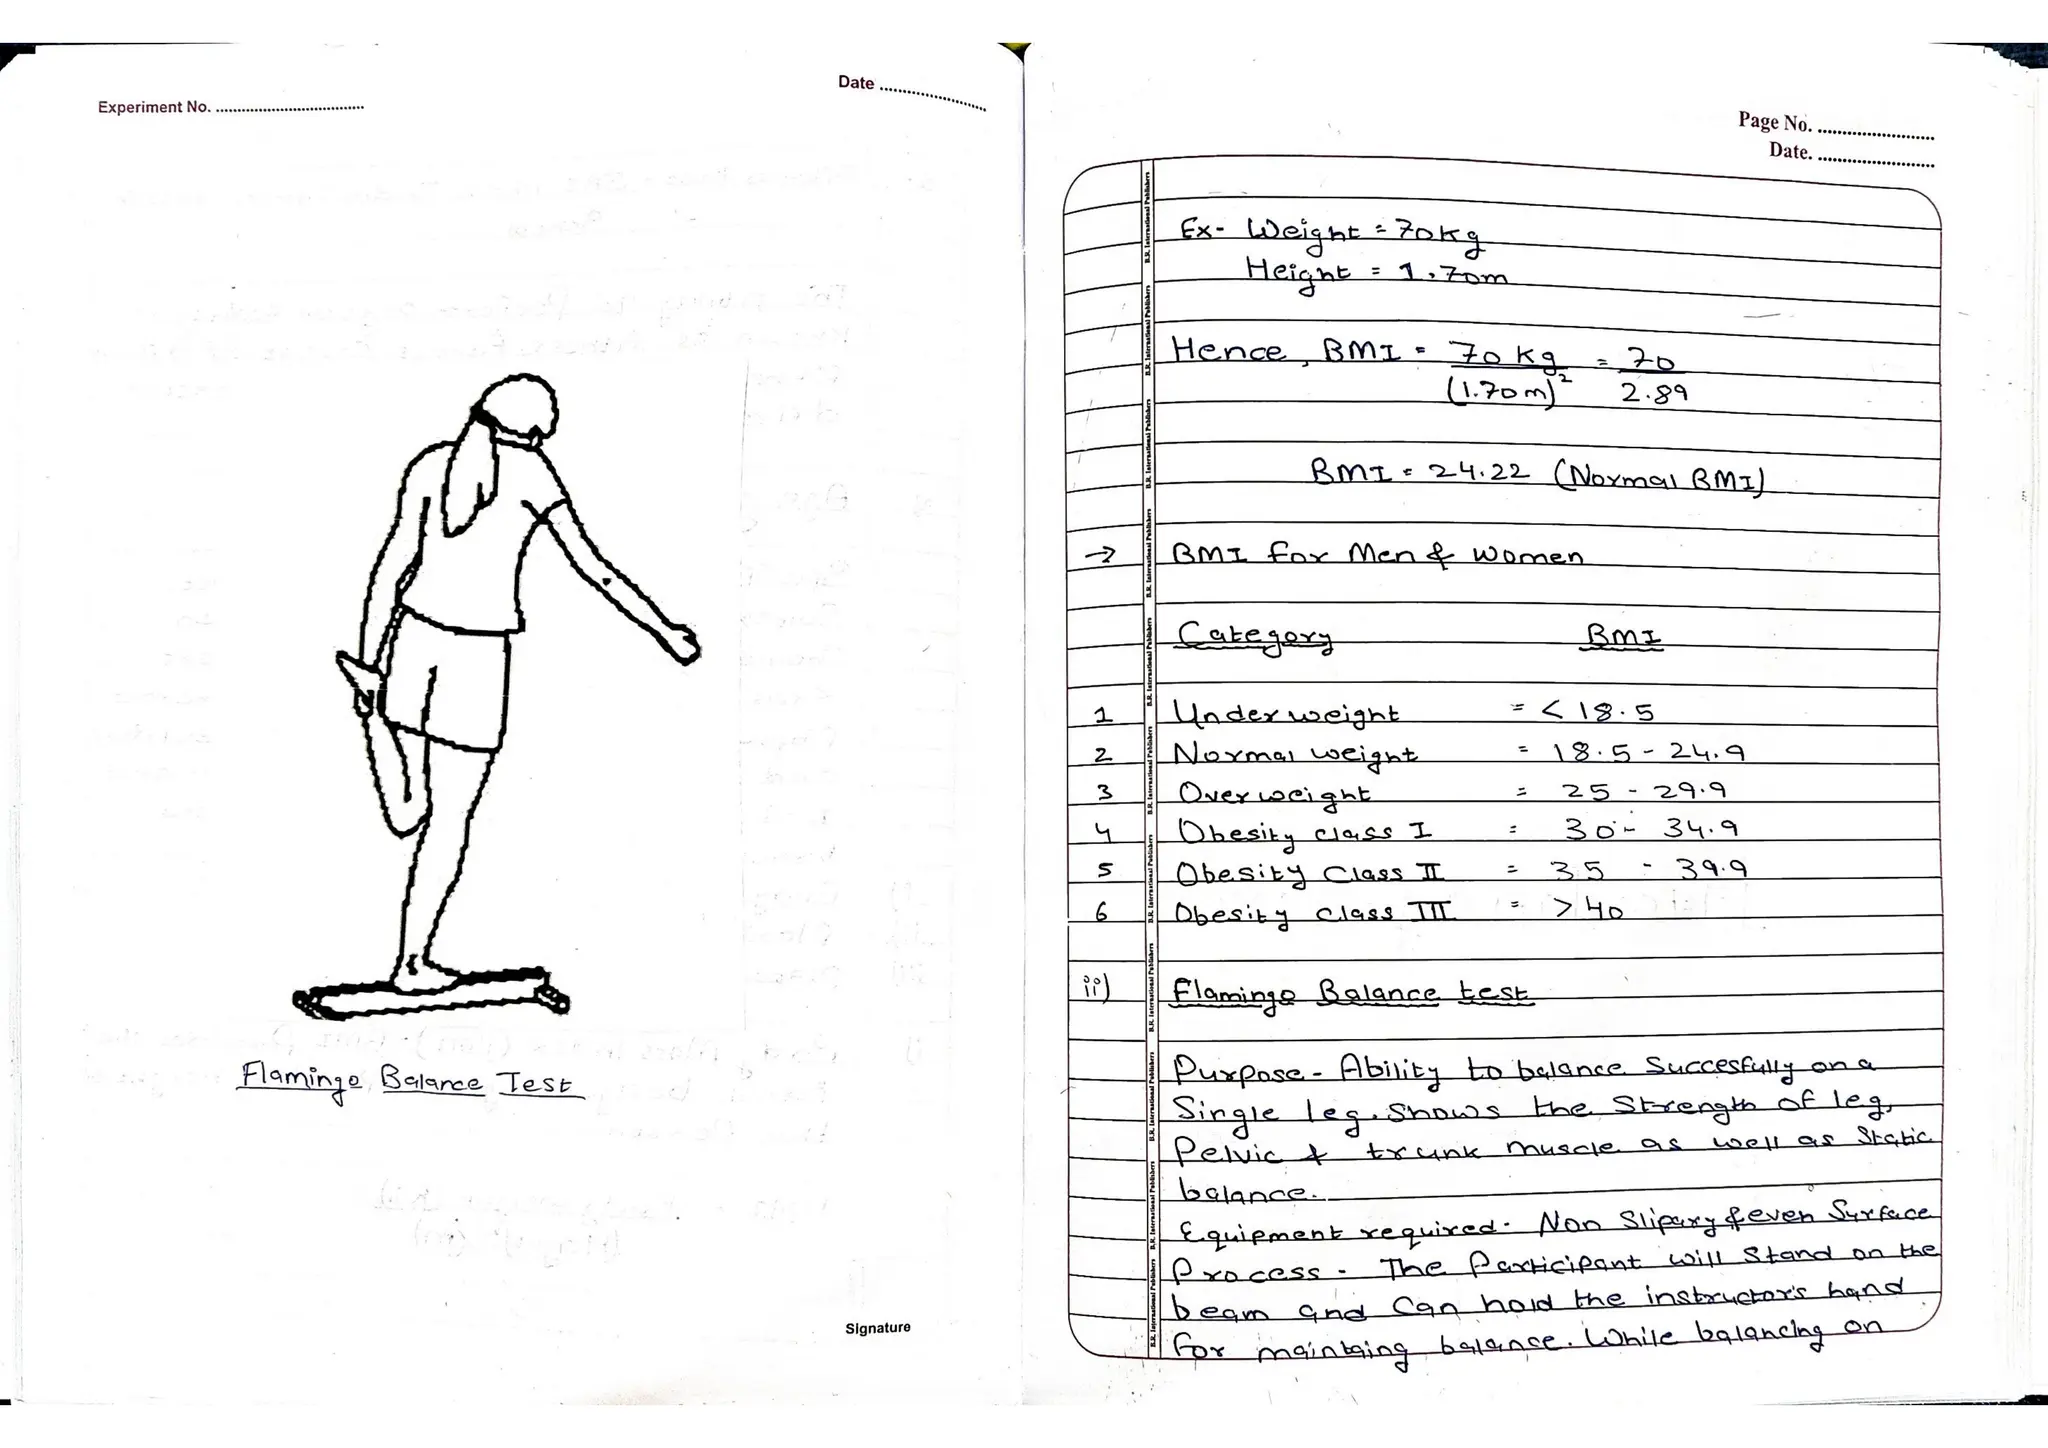 Experiment No. ....................................
Date ..........................
Flamingo Balance Test
Signature
Page No. ..........................
Date. ..........................
Ex- Weight = 70kg
Height = 1.70m
Hence, BMI = 70 kg / (1.70m)² = 70 / 2.89
BMI = 24.22 (Normal BMI)
→ BMI for Men & Women
Category BMI
1 Underweight = < 18.5
2 Normal weight = 18.5 - 24.9
3 Overweight = 25 - 29.9
4 Obesity class I = 30 - 34.9
5 Obesity Class II = 35 - 39.9
6 Obesity class III = > 40
ii) Flamingo Balance test
Purpose - Ability to balance Succesfully on a
Single leg. Shows the Strength of leg,
Pelvic & trunk muscle as well as Static
balance.
Equipment required - Non Slipary & even Surface
Process - The Participant will Stand on the
beam and Can hold the instructor's hand
for maintaing balance. While balancing on
B.R. International Publishers